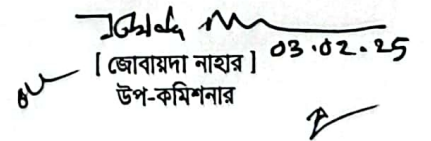 03.02.25
[ জোবায়দা নাহার ]
উপ-কমিশনার